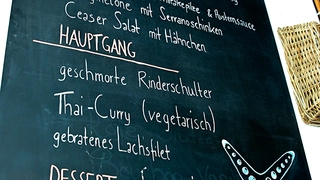 mit Serranoschinken
Ceaser Salat mit Hähnchen
HAUPTGANG
geschmorte Rinderschulter
Thai-Curry (vegetarisch)
gebratenes Lachsfilet
DESSERT